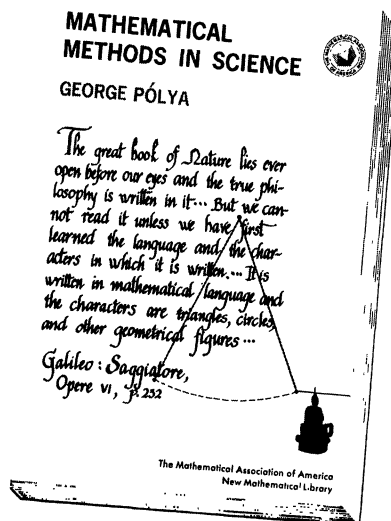 MATHEMATICAL
METHODS IN SCIENCE
GEORGE PÓLYA
The great book of Nature lies ever
open before our eyes and the true phi-
losophy is written in it... But we can-
not read it unless we have first
learned the language and the char-
acters in which it is written... It is
written in mathematical language and
the characters are triangles, circles,
and other geometrical figures...
Galileo: Saggiatore,
Opere VI, p. 232
The Mathematical Association of America
New Mathematical Library